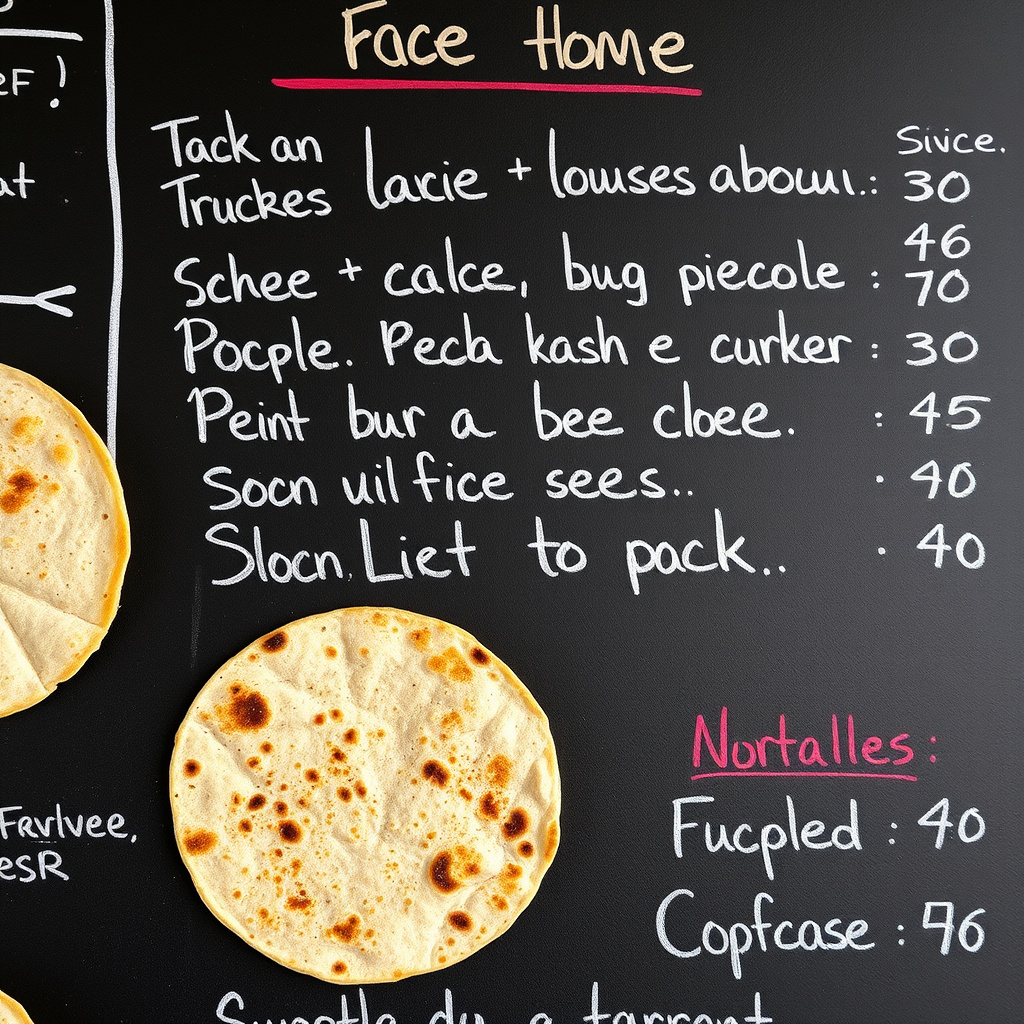 Face Home
Sivice.
Tack an
Truckes lacie + louses abouu..: 30
46
Schee + calce, bug piecole : 70
Pocple. Pecla kash e curker : 30
Peint bur a bee cloee. : 45
Socn uil fice sees.. . 40
Slocn. Liet to pack.. . 40
Nortalles:
Fucpled : 40
Copfcase : 46
eF!
at
Fravlvee,
esR